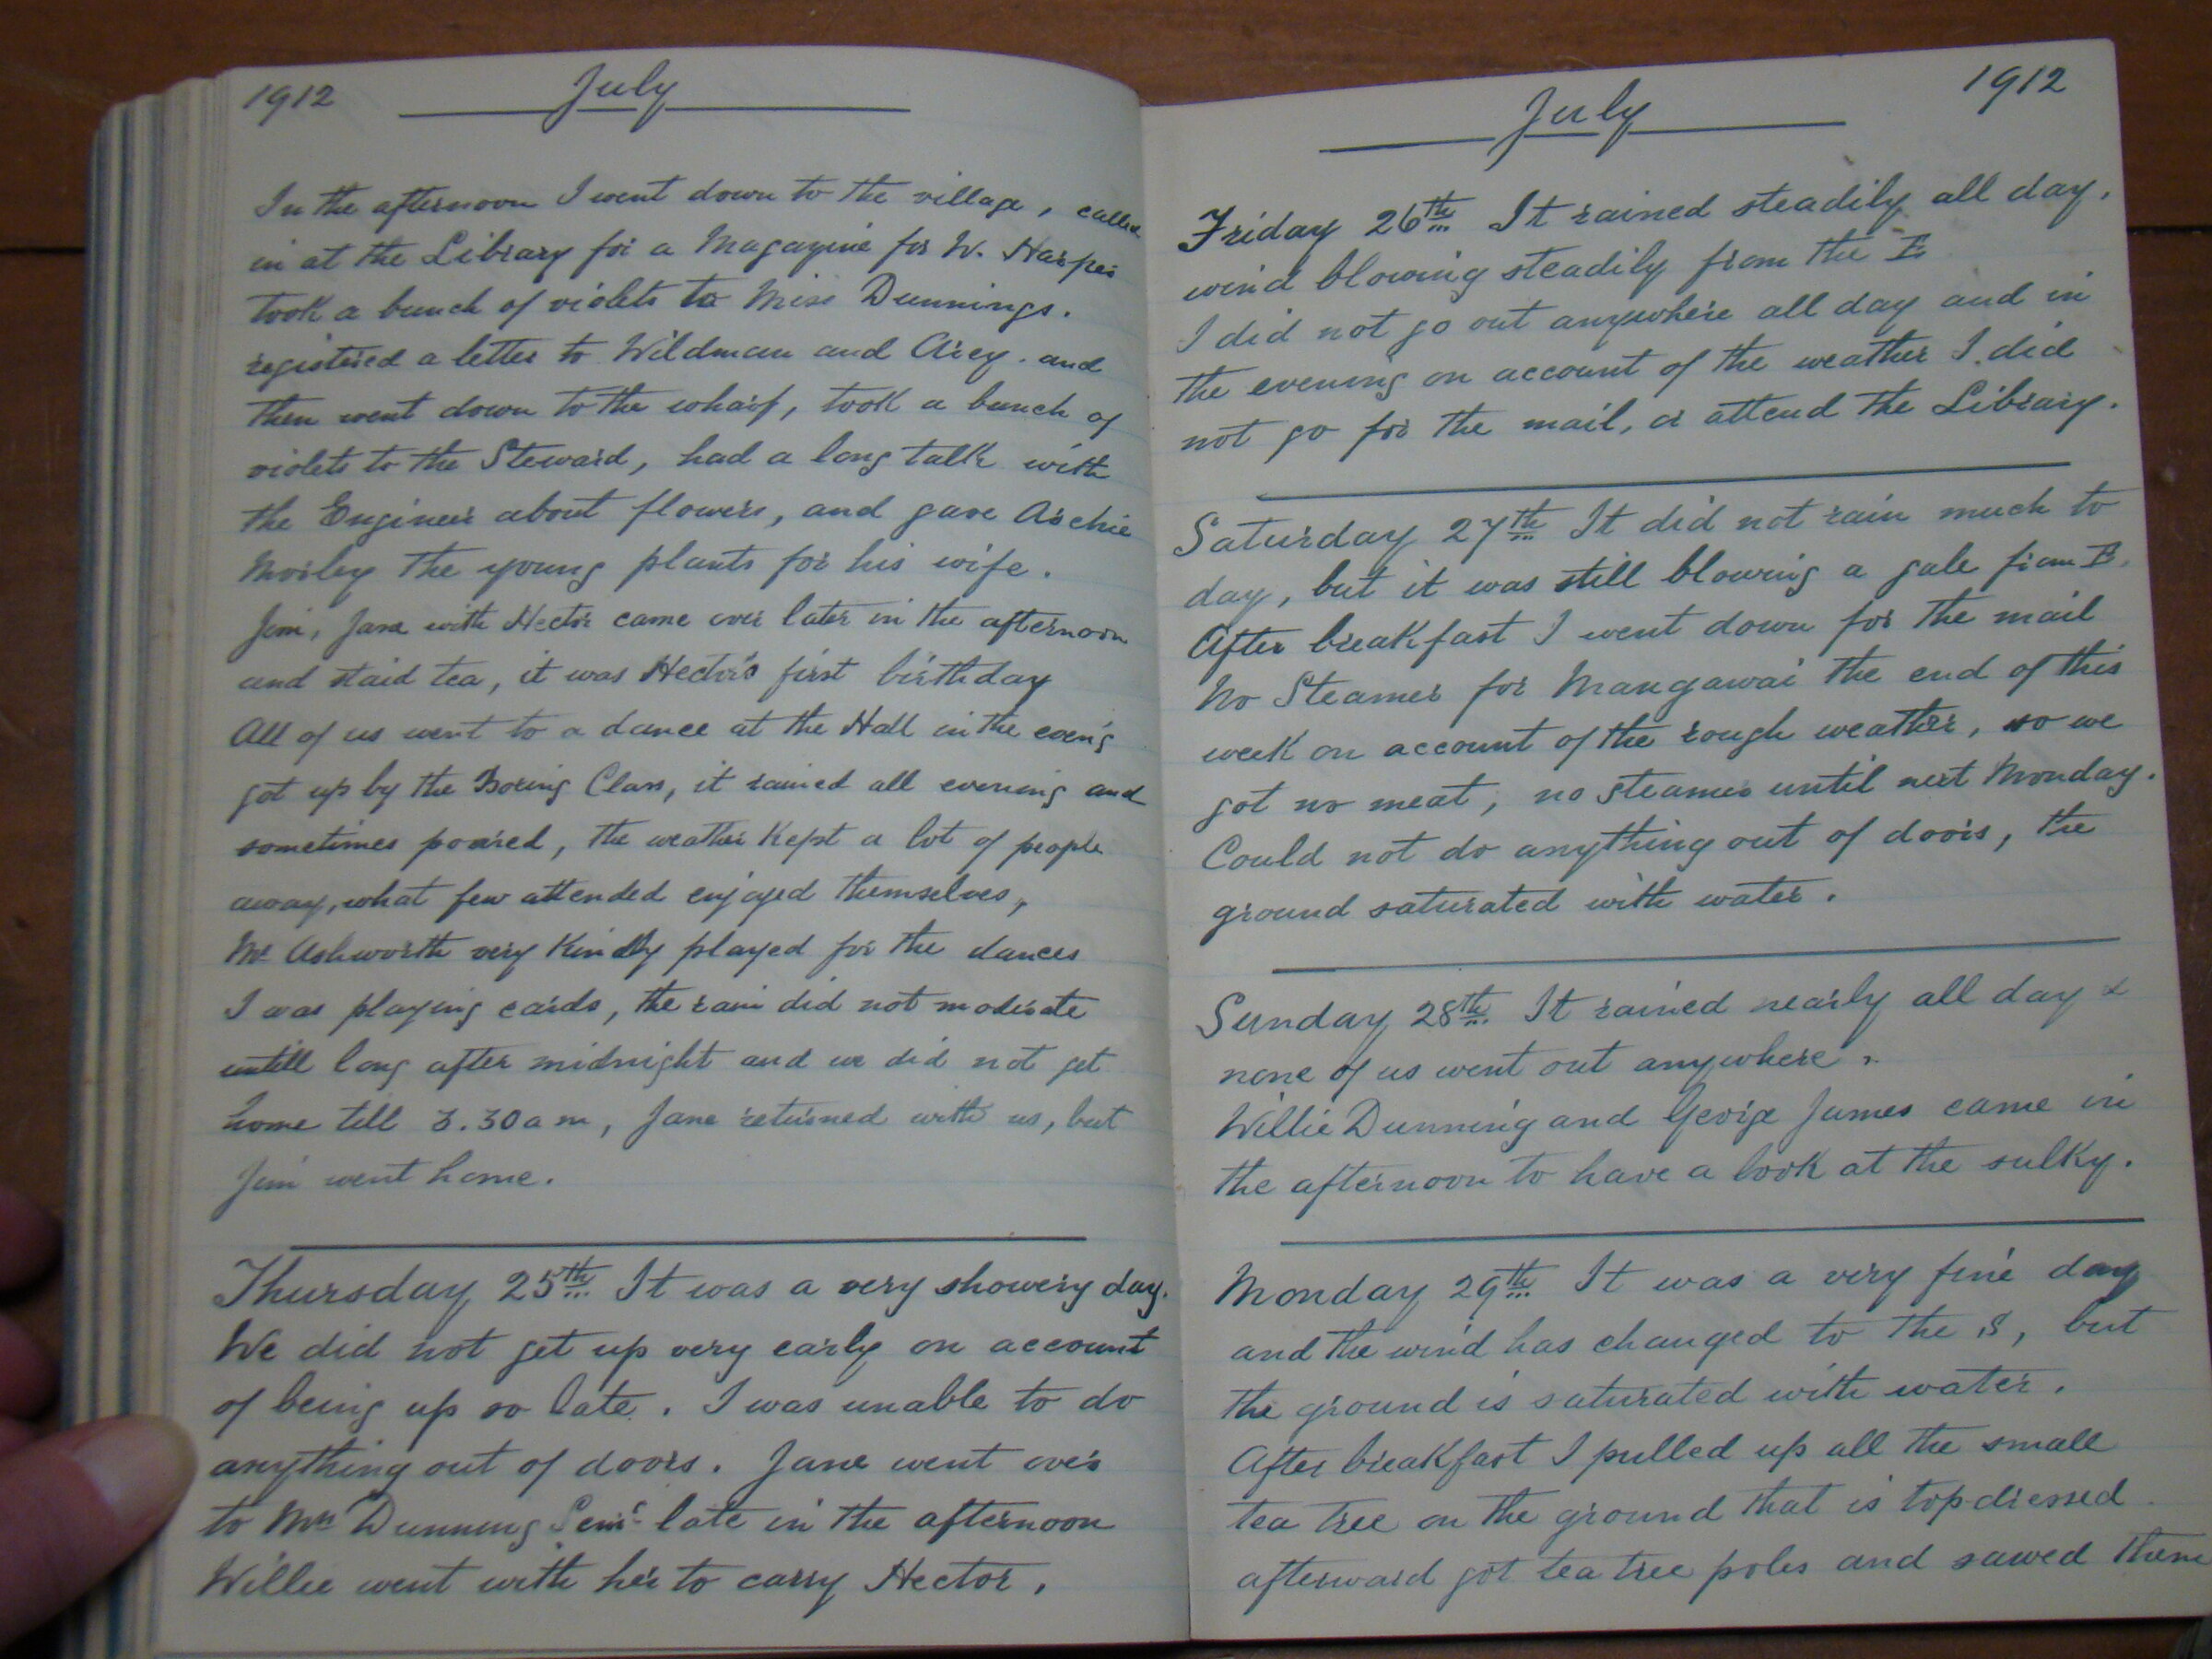 1912
July
In the afternoon I went down to the village, called
in at the Library for a Magazine for W. Harper
took a bunch of violets to Miss Dunnings.
registered a letter to Wildman and Arey. and
then went down to the wharf, took a bunch of
violets to the Steward, had a long talk with
the Engineer about flowers, and gave Archie
Morley the young plants for his wife.
Jim, Jane with Hector came over later in the afternoon
and staid tea, it was Hector's first birthday
All of us went to a dance at the Hall in the even'g
got up by the Boxing Class, it rained all evening and
sometimes poared, the weather Kept a lot of people
away, what few attended enjoyed themselves,
Mr Ashworth very Kindly played for the dances
I was playing cards, the rain did not moderate
untill long after midnight and we did not get
home till 3.30 a m, Jane returned with us, but
Jim went home.
Thursday 25th It was a very showery day.
We did not get up very early on account
of being up so late. I was unable to do
anything out of doors. Jane went over
to Mrs Dunning Senr late in the afternoon
Willie went with her to carry Hector.
July
1912
Friday 26th It rained steadily all day.
wind blowing steadily from the E
I did not go out anywhere all day and in
the evening on account of the weather I did
not go for the mail, or attend the Library.
Saturday 27th It did not rain much to
day, but it was still blowing a gale from E.
After breakfast I went down for the mail
No Steamer for Mangawai the end of this
week on account of the rough weather, so we
got no meat, no steamer until next Monday.
Could not do anything out of doors, the
ground saturated with water.
Sunday 28th It rained nearly all day &
none of us went out anywhere.
Willie Dunning and George James came in
the afternoon to have a look at the sulky.
Monday 29th It was a very fine day
and the wind has changed to the S, but
the ground is saturated with water.
After breakfast I pulled up all the small
tea tree on the ground that is top-dressed
afterward got tea tree poles and sawed them